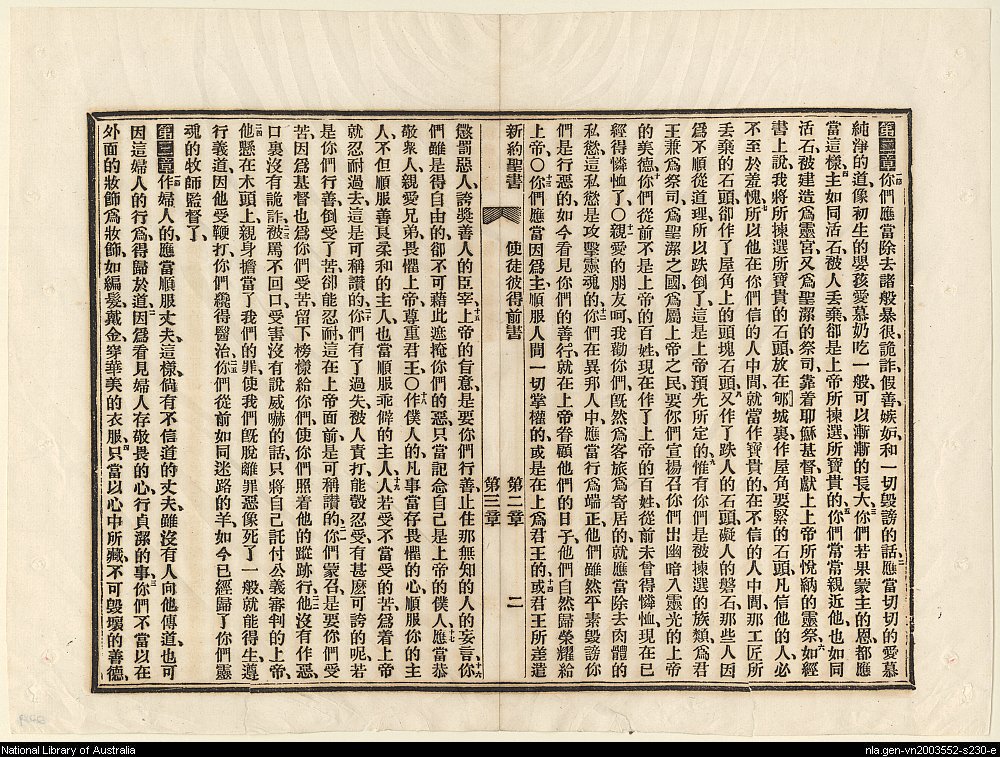 第二章 一你們應當除去諸般暴很詭詐、假善嫉妬、和一切毀謗的話、二應當切切的愛慕
純淨的道、像初生的嬰孩愛慕奶吃一般、可以漸漸的長大、三你們若果蒙主的恩、都應
當這樣、四主如同活石、被人丟棄、卻是上帝所揀選所寶貴的、五你們常常親近他、也如同
活石、被建造為靈宮、又為聖潔的祭司、靠着耶穌基督、獻上上帝所悅納的靈祭、六如經
書上說、我將所揀選所寶貴的石頭、放在郇城裏、作屋角要緊的石頭、凡信他的人、必
不至於羞愧、七所以他在你們信的人中間、就當作寶貴的、在不信的人中間、那工匠所
丟棄的石頭、卻作了屋角上的頭塊石頭、八又作了跌人的石頭、礙人的磐石、那些人因
為不順從道理、所以跌倒了、這是上帝預先所定的、九惟有你們是被揀選的族類、為君
王兼為祭司、為聖潔之國、為屬上帝之民、要你們宣揚召你們出幽暗入靈光的上帝
的美德、十你們從前不是上帝的百姓、現在作了上帝的百姓、從前未曾得憐恤、現在已
經得憐恤了、〇十一親愛的朋友呵、我勸你們、既然為客旅為寄居的、就應當除去肉體的
私慾、這私慾是攻擊靈魂的、十二你們在異邦人中應當行為端正、他們雖然平素毀謗你
們是行惡的、如今看見你們的善行、就在上帝眷顧他們的日子、他們自然歸榮耀給
上帝、〇十三你們應當因為主順服人間一切掌權的、或是在上為君王的、十四或君王所差遣
新約聖書 使徒彼得前書 第二章 第三章 二
懲罰惡人誇奬善人的臣宰、十五上帝的旨意、是要你們行善、止住那無知的人的妄言、十六你
們雖是得自由的、卻不可藉此遮掩你們的惡、只當記念自己是上帝的僕人、十七應當恭
敬衆人、親愛兄弟、畏懼上帝、尊重君王、〇十八作僕人的、凡事當存畏懼的心、順服你的主
人、不但順服善良柔和的主人、也當順服乖僻的主人、十九人若受不當受的苦、為着上帝
就忍耐過去、這是可稱讚的、二十你們有了過失、被人責打、能彀忍受、有甚麽可誇的呢、若
是你們行善、倒受了苦、卻能忍耐、這在上帝面前、是可稱讚的、二一你們蒙召、是要你們受
苦、因為基督也為你們受苦、留下榜樣給你們、使你們照着他的蹤跡行、二二他沒有作惡、
口裏沒有詭詐、二三被罵不回口、受害沒有說威嚇的話、只將自己託付公義審判的上帝、
二四他懸在木頭上、親身擔當了我們的罪、使我們既脫離罪惡、像死了一般、就能得生、遵
行義道、因他受鞭打、你們纔得醫治、二五你們從前如同迷路的羊、如今已經歸了你們靈
魂的牧師監督了、
第三章 一作婦人的、應當順服丈夫、這樣、倘有不信道的丈夫、雖沒有人向他傳道、也可
因這婦人的行為、得歸於道、二因為看見婦人存敬畏的心、行貞潔的事、三你們不當以在
外面的妝飾為妝飾、如編髮戴金、穿華美的衣服、四只當以心中所藏、不可毀壞的善德、
National Library of Australia
nla.gen-vn2003552-s230-e